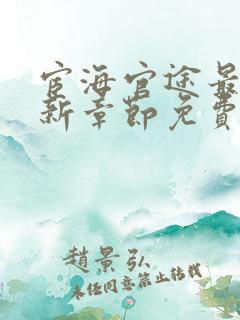 宦海官途最
新章節免費
趙景弘
未经同意禁止转载